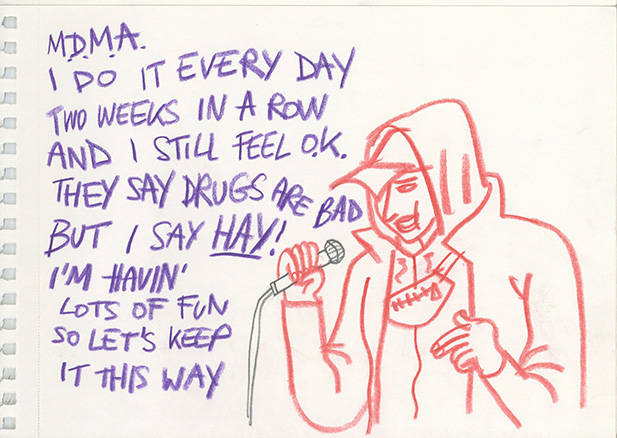 M.D.M.A.
I DO IT EVERY DAY
TWO WEEKS IN A ROW
AND I STILL FEEL O.K.
THEY SAY DRUGS ARE BAD
BUT I SAY HAY!
I'M HAVIN'
LOTS OF FUN
SO LET'S KEEP
IT THIS WAY